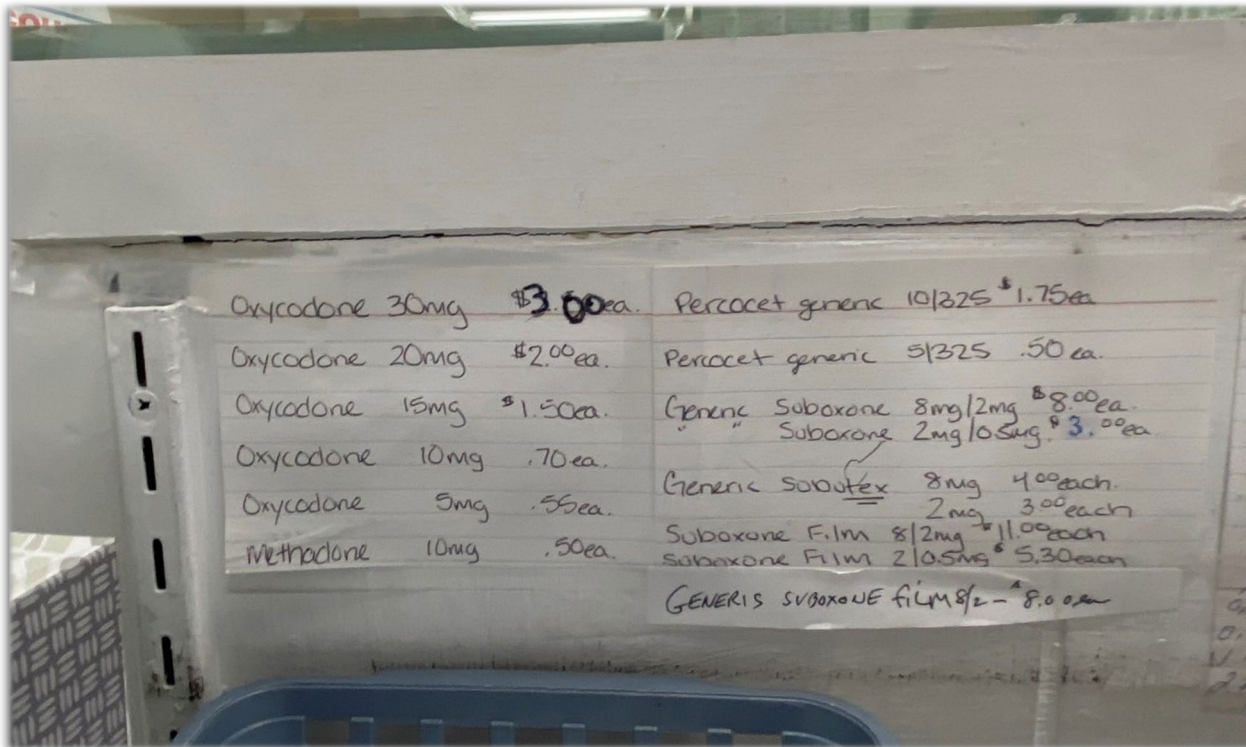 Oxycodone 30mg $3.00ea.
Oxycodone 20mg $2.00ea.
Oxycodone 15mg $1.50ea.
Oxycodone 10mg .70ea.
Oxycodone 5mg .55ea.
Methadone 10mg .50ea.
Percocet generic 10/325 $1.75ea
Percocet generic 5/325 .50 ea.
Generic Suboxone 8mg/2mg $8.00ea.
" " Suboxone 2mg/0.5mg $3.00ea
Generic Subutex 8mg 4.00each.
2mg 3.00each
Suboxone Film 8/2mg $11.00each
Suboxone Film 2/0.5mg $5.30each
GENERIS SUBOXONE fiLM 8/2 - $8.00ea